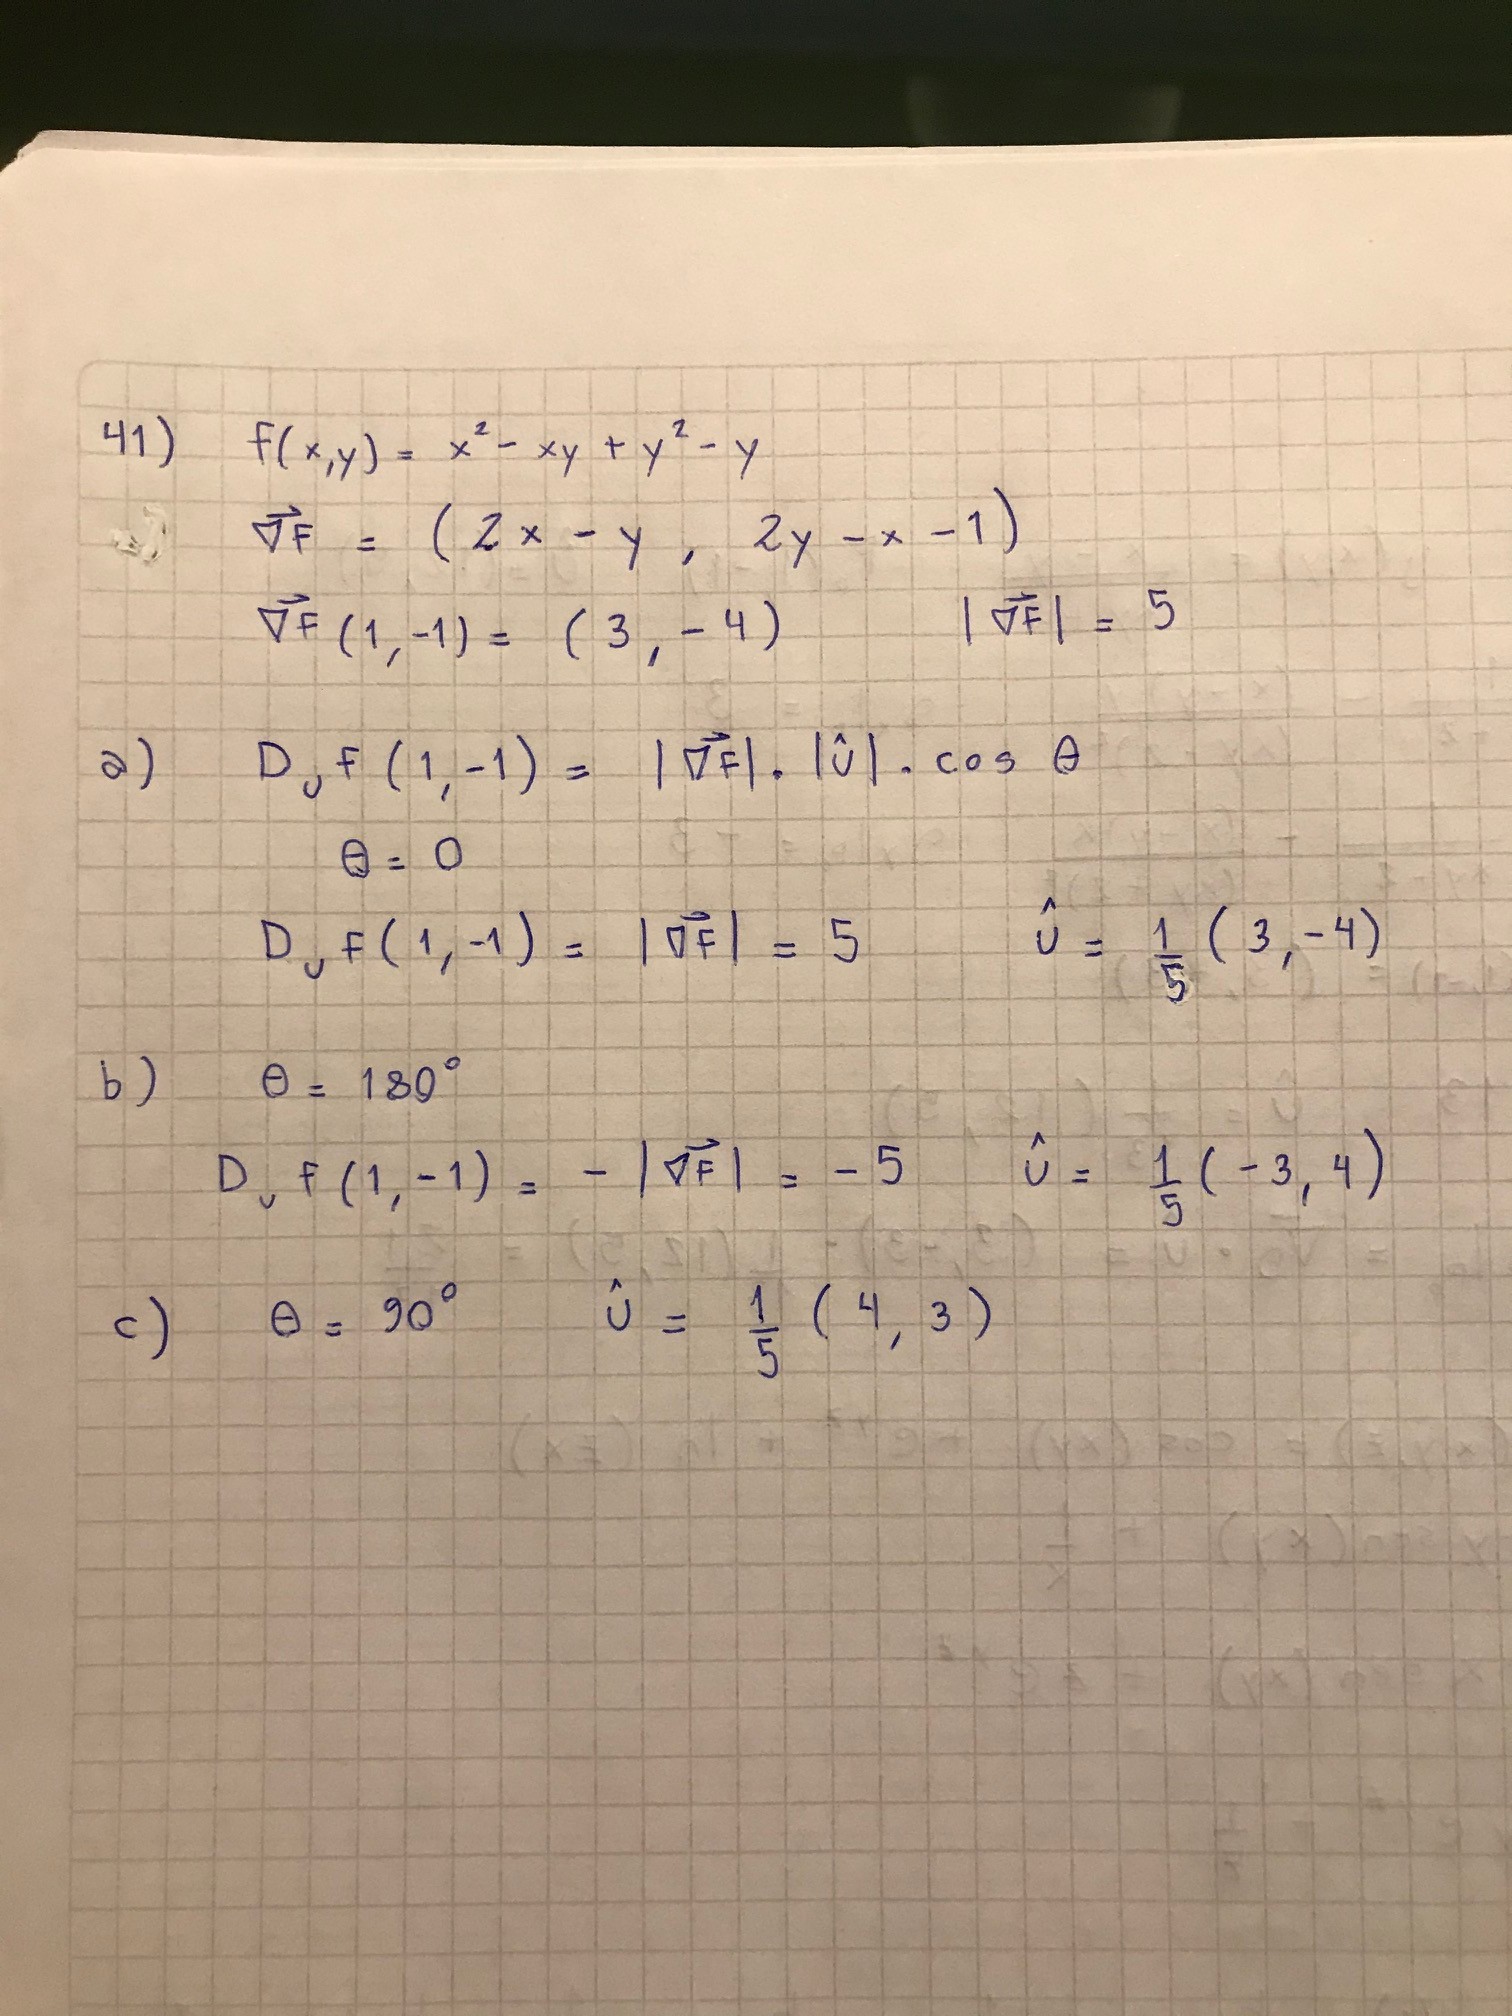 41) f(x,y) = x² - xy + y² - y
∇⃗F = (2x - y, 2y - x - 1)
∇⃗F (1,-1) = (3, -4) |∇⃗F| = 5
a) Dᵤ f(1,-1) = |∇⃗F| . |û| . cos θ
θ = 0
Dᵤ f(1,-1) = |∇⃗F| = 5 û = 1/5 (3,-4)
b) θ = 180°
Dᵤ f(1,-1) = - |∇⃗F| = -5 û = 1/5 (-3, 4)
c) θ = 90° û = 1/5 (4, 3)